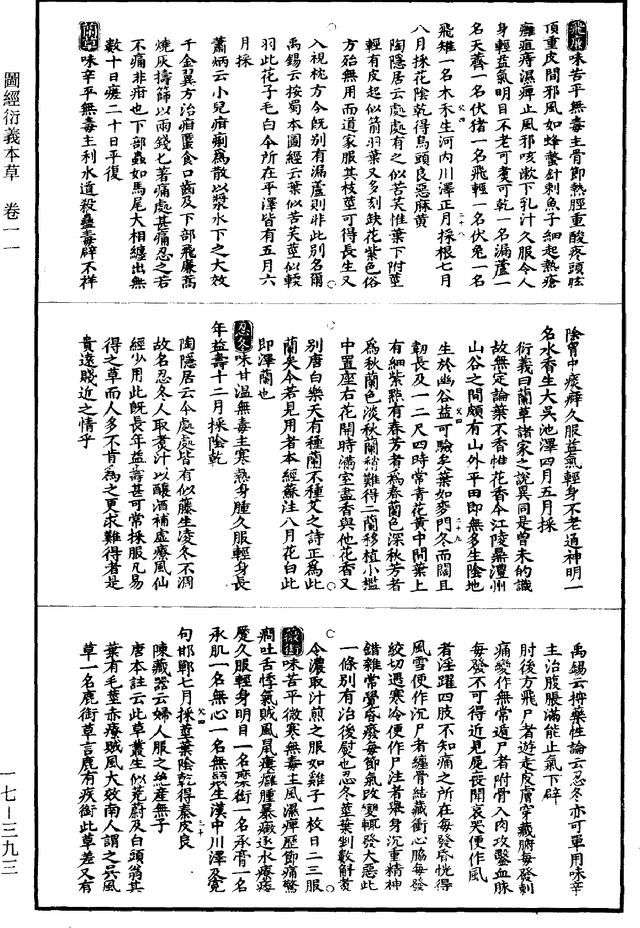 圖經衍義本草 卷一一
一七—三九三
飛廉味苦平無毒主骨節熱脛重酸疼頭眩
頂重皮間邪風如蜂螫針刺魚子細起熱瘡
癰疽痔濕痺止風邪咳嗽下乳汁久服令人
身輕益氣明目不老可煮可乾一名漏蘆一
名天薺一名伏猪一名飛輕一名伏兔一名
飛雉一名木禾生河內川澤正月採根七月
八月採花陰乾得烏頭良惡麻黄
陶隱居云處處有之似苦芺惟葉下附莖
輕有皮起似箭羽葉又多刻缺花紫色俗
方殆無用而道家服其枝莖可得長生又
入視枕方今既別有漏蘆則非此別名爾
禹錫云按蜀本圖經云葉似苦芺莖似軟
羽此花子毛白今所在平澤皆有五月六
月採
蕭炳云小兒疳痢為散以漿水下之大效
千金翼方治疳䘌食口齒及下部飛廉蒿
燒灰擣篩以兩錢匕著痛處甚痛忍之若
不痛非疳也下部蟲如馬尾大相纏出無
數十日瘥二十日平復
蘭草味辛平無毒主利水道殺蠱毒辟不祥
除胷中痰癖久服益氣輕身不老通神明一
名水香生大吳池澤四月五月採
衍義曰蘭草諸家之說異同是曾未的識
故無定論葉不香惟花香今江陵鼎澧州
山谷之間頗有山外平田即無多生陰地
生於幽谷益可驗矣葉如麥門冬而闊且
韌長及一二尺四時常青花黄中間葉上
有細紫點有春芳者為春蘭色深秋芳者
為秋蘭色淡秋蘭稍難得二蘭移植小檻
中置座右花開時滿室盡香與他花香又
別唐白樂天有種蘭不種艾之詩正為此
蘭矣今若見用者本經蘇注八月花白此
即澤蘭也
忍冬味甘溫無毒主寒熱身腫久服輕身長
年益壽十二月採陰乾
陶隱居云今處處皆有似藤生凌冬不凋
故名忍冬人取煮汁以釀酒補虛療風仙
經少用此既長年益壽甚可常採服凡易
得之草而人多不肯為之更求難得者是
貴遠賤近之情乎
禹錫云按藥性論云忍冬亦可單用味辛
主治腹脹滿能止氣下澼
肘後方飛尸者遊走皮膚穿藏腑每發刺
痛變作無常遁尸者附骨入肉攻鑿血脉
每發不可得近見屍喪聞哀哭便作風
者淫躍四肢不知痛之所在每發昏恍得
風雪便作沉尸者纏骨結藏衝心脇每發
絞切遇寒冷便作尸注者舉身沉重精神
錯雜常覺昏廢每節氣改變輒發大惡此
一條別有治後熨也忍冬莖葉剉數斛煮
令濃取汁煎之服如雞子一枚日二三服
薇銜味苦平微寒無毒主風濕痺歷節痛驚
癇吐舌悸氣賊風鼠瘻癰腫暴癥逐水療痿
蹷久服輕身明目一名麋銜一名承膏一名
承肌一名無心一名無顛生漢中川澤及寃
句邯鄲七月採莖葉陰乾得秦皮良
陳藏器云婦人服之絶産無子
唐本註云此草叢生似茺蔚及白頭翁其
葉有毛莖赤療賊風大效南人謂之吳風
草一名鹿銜草言鹿有疾銜此草差又有